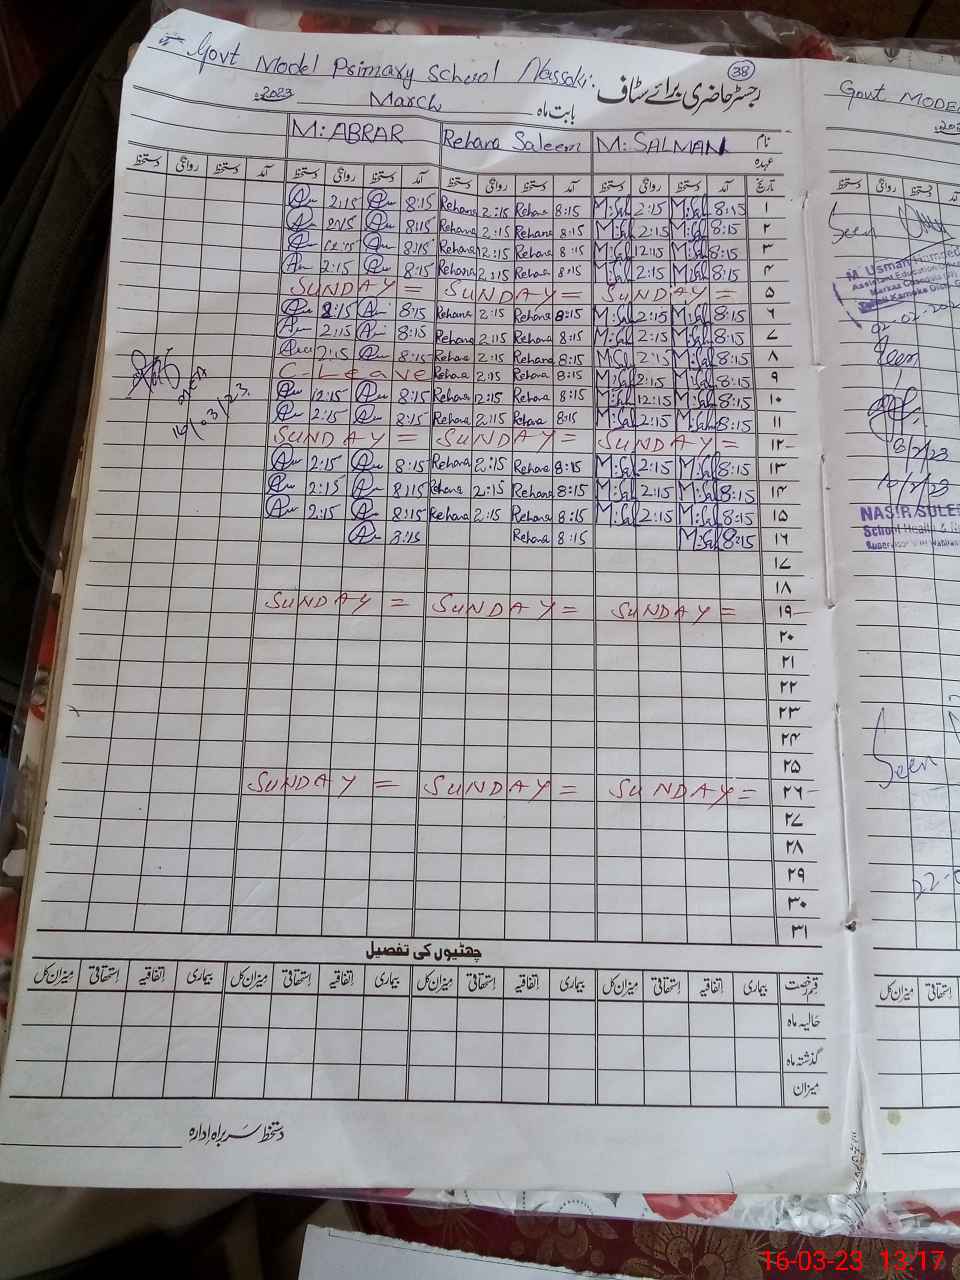 Govt Model Primary School
38
رجسٹر حاضری برائے سٹاف
بابت ماہ March 2023
نام M: SALMAN Rehana Saleem M: ABRAR
عہدہ
تاریخ آمد دستخط روانگی دستخط آمد دستخط روانگی دستخط آمد دستخط روانگی دستخط آمد دستخط روانگی دستخط
۱ 8:15 M:Sal 2:15 M:Sal 8:15 Rehana 2:15 Rehana 8:15 2:15
۲ 8:15 M:Sal 2:15 M:Sal 8:15 Rehana 2:15 Rehana 8:15 2:15
۳ 8:15 M:Sal 12:15 M:Sal 8:15 Rehana 12:15 Rehana 8:15 12:15
۴ 8:15 M:Sal 2:15 M:Sal 8:15 Rehana 2:15 Rehana 8:15 2:15
۵ SUNDAY = SUNDAY = SUNDAY =
۶ 8:15 M:Sal 2:15 M:Sal 8:15 Rehana 2:15 Rehana 8:15
۷ 8:15 M:Sal 2:15 M:Sal 8:15 Rehana 2:15 Rehana 8:15 2:15
۸ 8:15 M:Sal 2:15 8:15 Rehana 2:15 Rehana 8:15 2:15
۹ 8:15 M:Sal 2:15 M:Sal 8:15 Rehana 2:15 Rehana C-Leave
۱۰ 8:15 M:Sal 12:15 M:Sal 8:15 Rehana 12:15 Rehana 8:15 12:15
۱۱ 8:15 M:Sal 2:15 M:Sal 8:15 Rehana 2:15 Rehana 8:15 2:15
۱۲ SUNDAY = SUNDAY = SUNDAY =
۱۳ 8:15 M:Sal 2:15 M:Sal 8:15 Rehana 2:15 Rehana 8:15 2:15
۱۴ 8:15 M:Sal 2:15 M:Sal 8:15 Rehana 2:15 Rehana 8:15 2:15
۱۵ 8:15 M:Sal 2:15 M:Sal 8:15 Rehana 2:15 Rehana 8:15 2:15
۱۶ 8:15 M:Sal 8:15 Rehana 8:15
۱۷
۱۸
۱۹ SUNDAY = SUNDAY = SUNDAY =
۲۰
۲۱
۲۲
۲۳
۲۴
۲۵
۲۶ SUNDAY = SUNDAY = SUNDAY =
۲۷
۲۸
۲۹
۳۰
۳۱
چھٹیوں کی تفصیل
قسم رخصت بیماری اتفاقیہ استحقاقی میزان کل بیماری اتفاقیہ استحقاقی میزان کل بیماری اتفاقیہ استحقاقی میزان کل بیماری اتفاقیہ استحقاقی میزان کل
حالیہ ماہ
گذشتہ ماہ
میزان
دستخط سربراہ ادارہ
Govt MODEL
آمد دستخط روانگی دستخط
Seen
M Usman
Seen
NASIR
School Health &
Seen
استحقاقی میزان کل
16-03-23 13:17